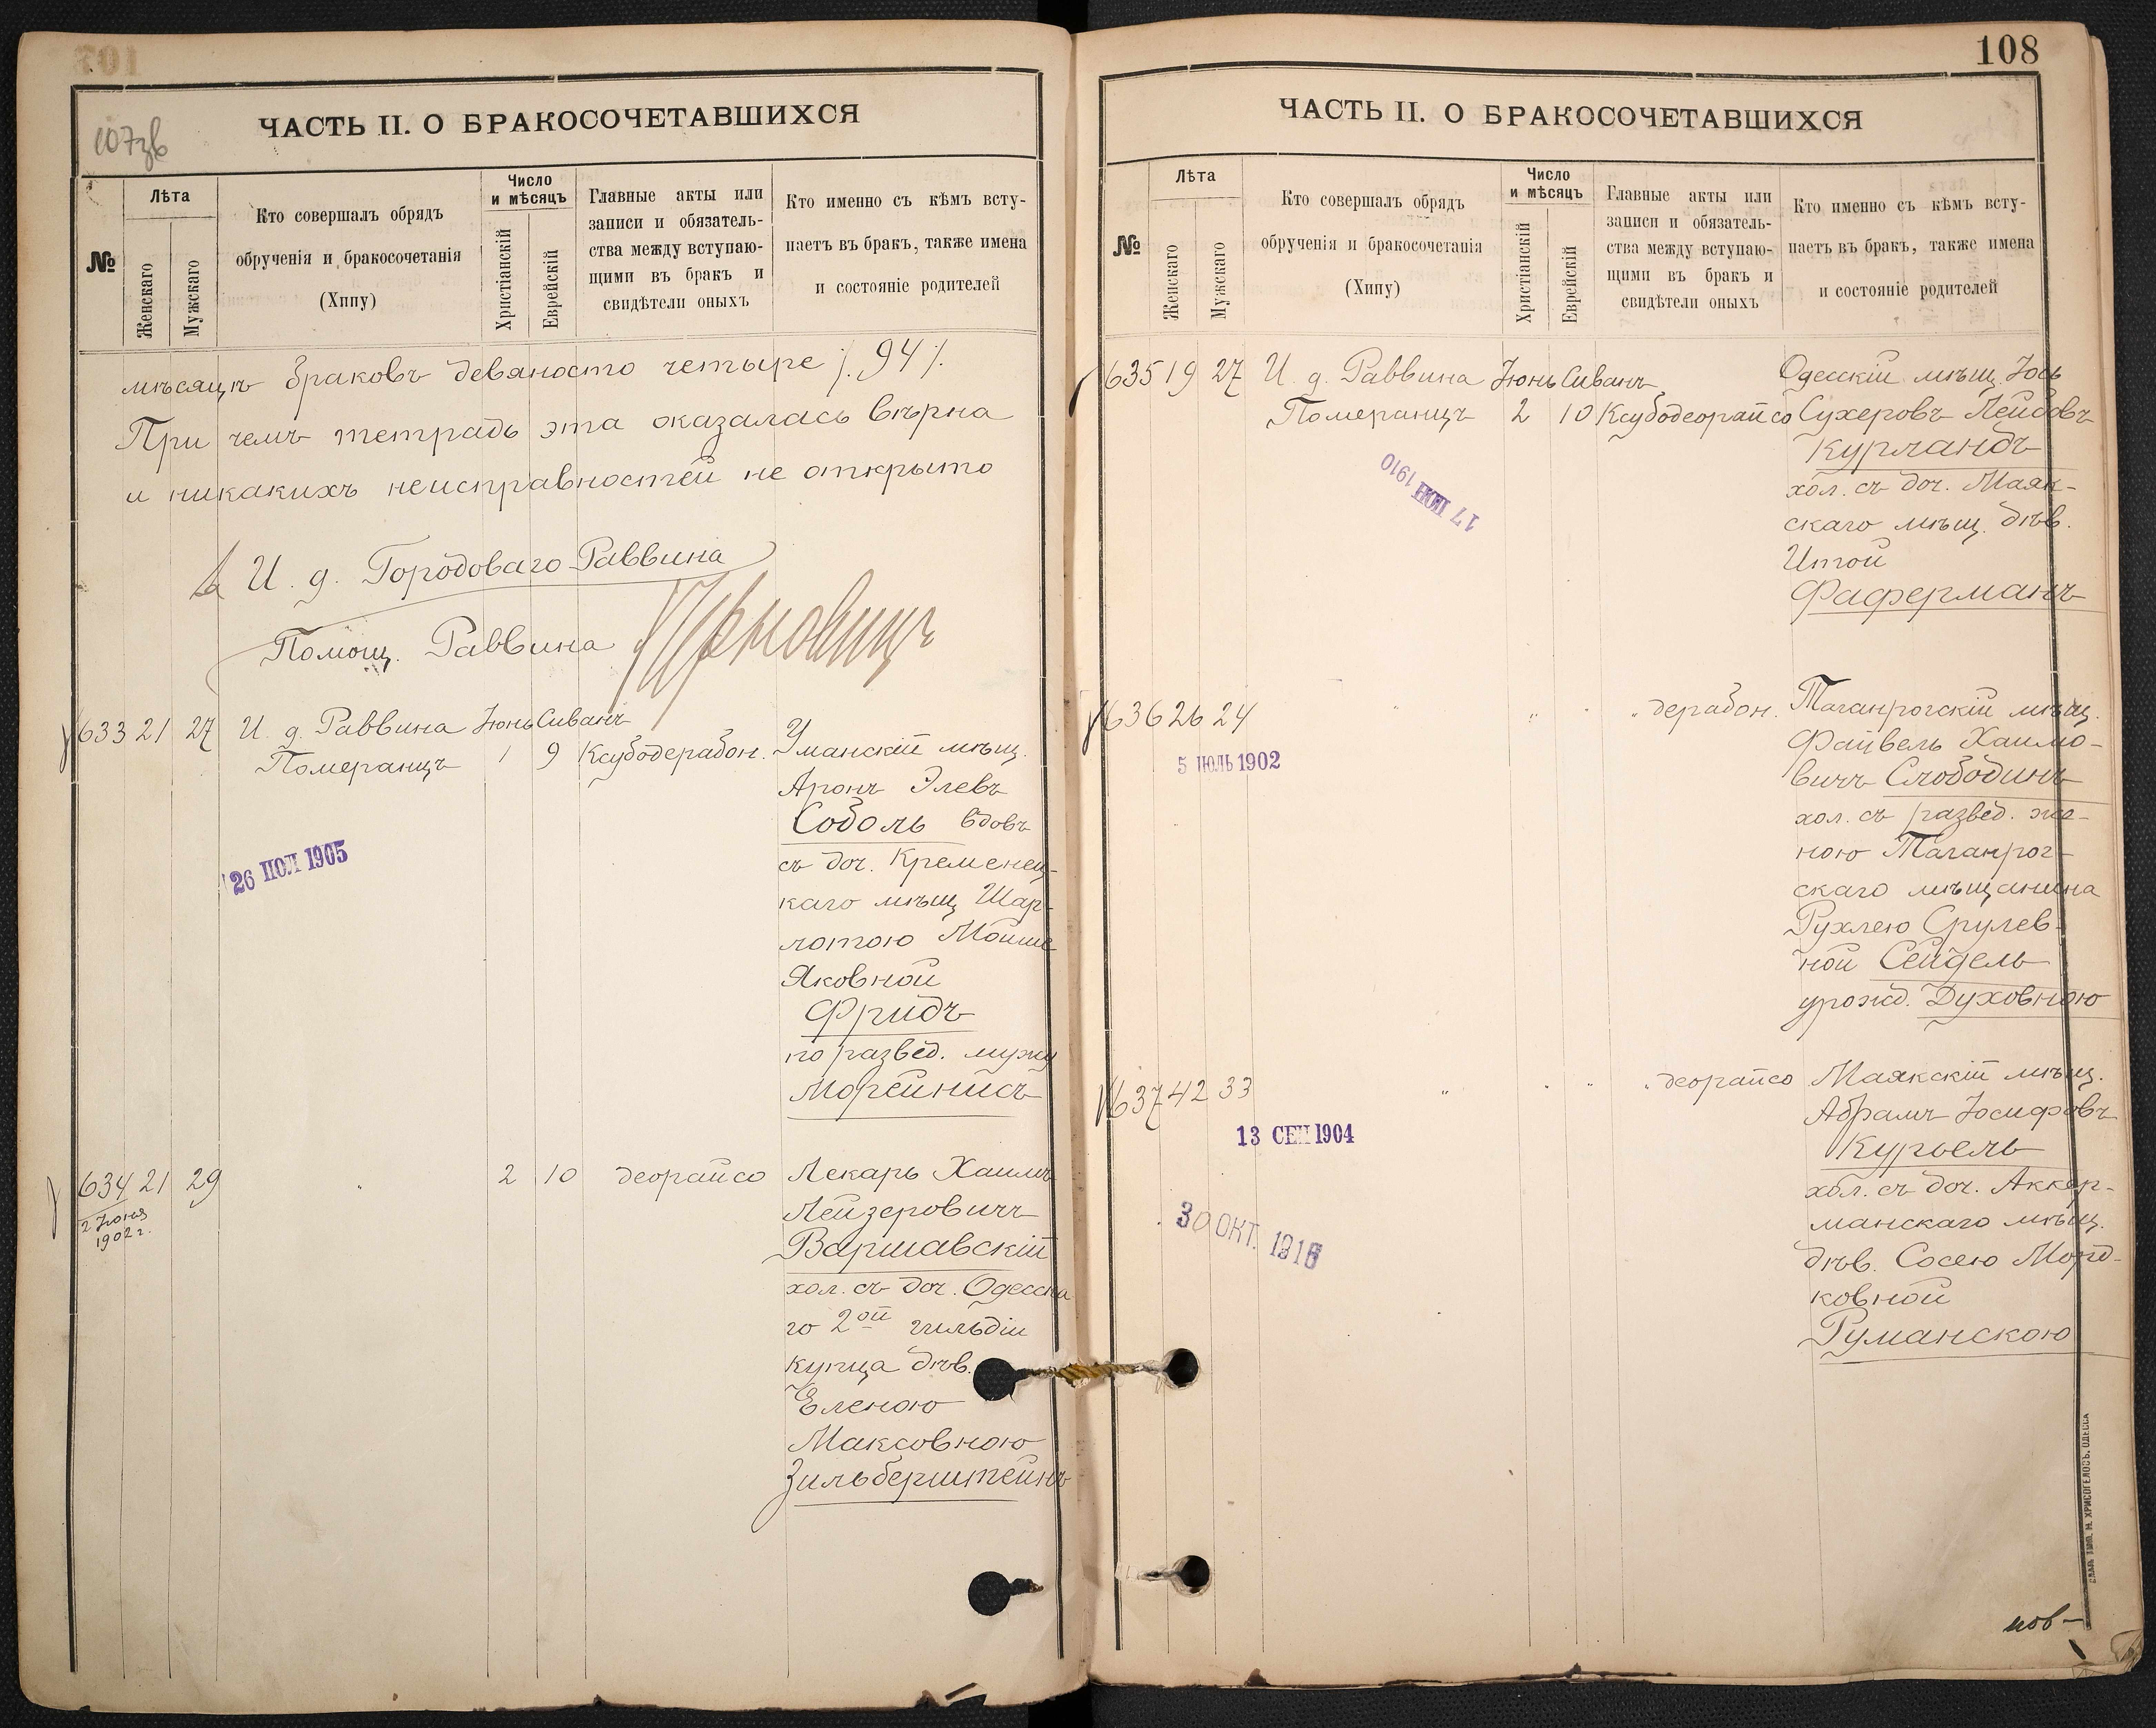 107зв
ЧАСТЬ II. О БРАКОСОЧЕТАВШИХСЯ
№
Лѣта
Женскаго
Мужскаго
Кто совершалъ обрядъ
обрученія и бракосочетанія
(Хипу)
Число
и мѣсяцъ
Христіанскій
Еврейскій
Главные акты или
записи и обязатель-
ства между вступаю-
щими въ бракъ и
свидѣтели оныхъ
Кто именно съ кѣмъ всту-
паетъ въ бракъ, также имена
и состояніе родителей
мѣсяцъ браковъ девяносто четыре /. 94 /.
При чемъ тетрадь эта оказалась вѣрна
и никакихъ неисправностей не открыто
И. д. Городоваго Раввина
Помощ. Раввина
633 21 27 И. д. Раввина Іюнь Сиванъ
Померанцъ 1 9 Ксубодерабон. Уманскій мѣщ.
Аронъ Элевъ
Соболь вдовъ
26 ІЮЛ 1905
съ доч. Кременец-
каго мѣщ Шар-
лотою Мойше
Яковной
Фридъ
по развед. мужу
Морейнисъ
634 21 29 " 2 10 деорайсо Лекарь Хаимъ
2 Іюня
1902 г.
Лейзеровичъ
Варшавскій
хол. съ доч. Одесска
го 2ой гильдіи
купца дѣв.
Еленою
Максовною
Зильберштейнъ
108
ЧАСТЬ II. О БРАКОСОЧЕТАВШИХСЯ
№
Лѣта
Женскаго
Мужскаго
Кто совершалъ обрядъ
обрученія и бракосочетанія
(Хипу)
Число
и мѣсяцъ
Христіанскій
Еврейскій
Главные акты или
записи и обязатель-
ства между вступаю-
щими въ бракъ и
свидѣтели оныхъ
Кто именно съ кѣмъ всту-
паетъ въ бракъ, также имена
и состояніе родителей
635 19 27 И. д. Раввина Іюнь Сиванъ Одесскій мѣщ. Іось
Померанцъ 2 10 Ксубодеорайсо Сухеровъ Лейбовъ
Курландъ
17 1910
хол. съ доч. Маяк-
скаго мѣщ. дѣв.
Итой
Фаферманъ
636 26 24 " " " " дерабон. Таганрогскій мѣщ.
5 ІЮЛЬ 1902
Файвель Хаимо-
вичъ Слободинъ
хол. съ развед. же-
ною Таганрог-
скаго мѣщанина
Рухлею Срулев-
ной Сейдель
урожд. Духовною
637 42 33 " " " " деорайсо Маякскій мѣщ.
13 СЕН 1904
Абрамъ Іосифовъ
Курьель
хол. съ доч. Аккер-
манскаго мѣщ.
30 ОКТ. 1916
дѣв. Сосею Морд-
ковной
Руманскою
СЛАВ. ТИП. Н. ХРИСОГЕЛОСЪ. ОДЕССА
нов-